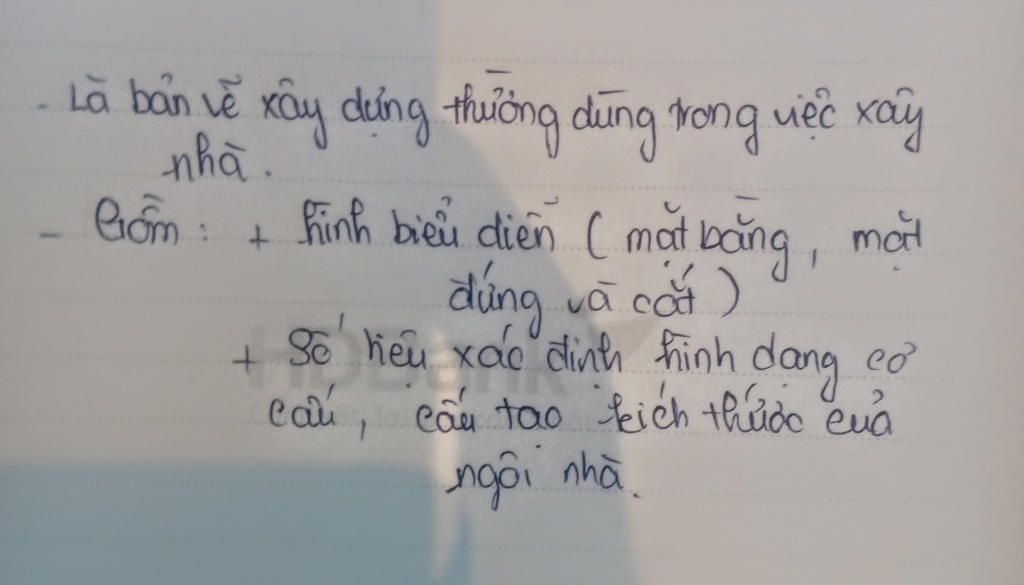 - Là bản vẽ xây dựng thường dùng trong việc xây
nhà.
- Gồm : + hình biểu diễn ( mặt bằng, mặt
đứng và cắt )
+ Số liệu xác định hình dạng cơ
cấu, cấu tạo kích thước của
ngôi nhà.
HDBank